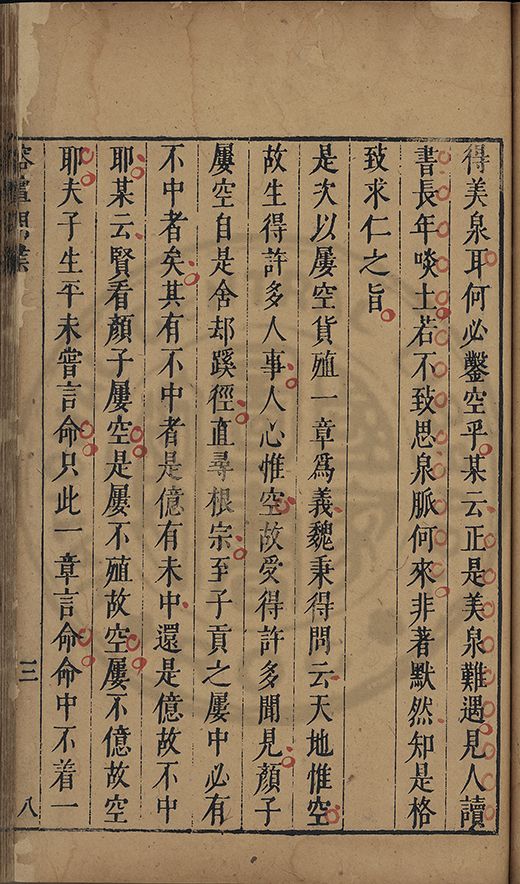 得美泉耳何必鑿空乎某云正是美泉難遇見人讀
書長年啖土若不致思泉脈何來非著默然知是格
致求仁之旨
是次以屢空貨殖一章爲義魏秉得問云天地惟空
故生得許多人事人心惟空故受得許多聞見顏子
屢空自是舍却蹊徑直尋根宗至子貢之屢中必有
不中者矣其有不中者是億有未中還是億故不中
耶某云賢看顏子屢空是屢不殖故空屢不億故空
耶夫子生平未嘗言命只此一章言命命中不着一
三
八